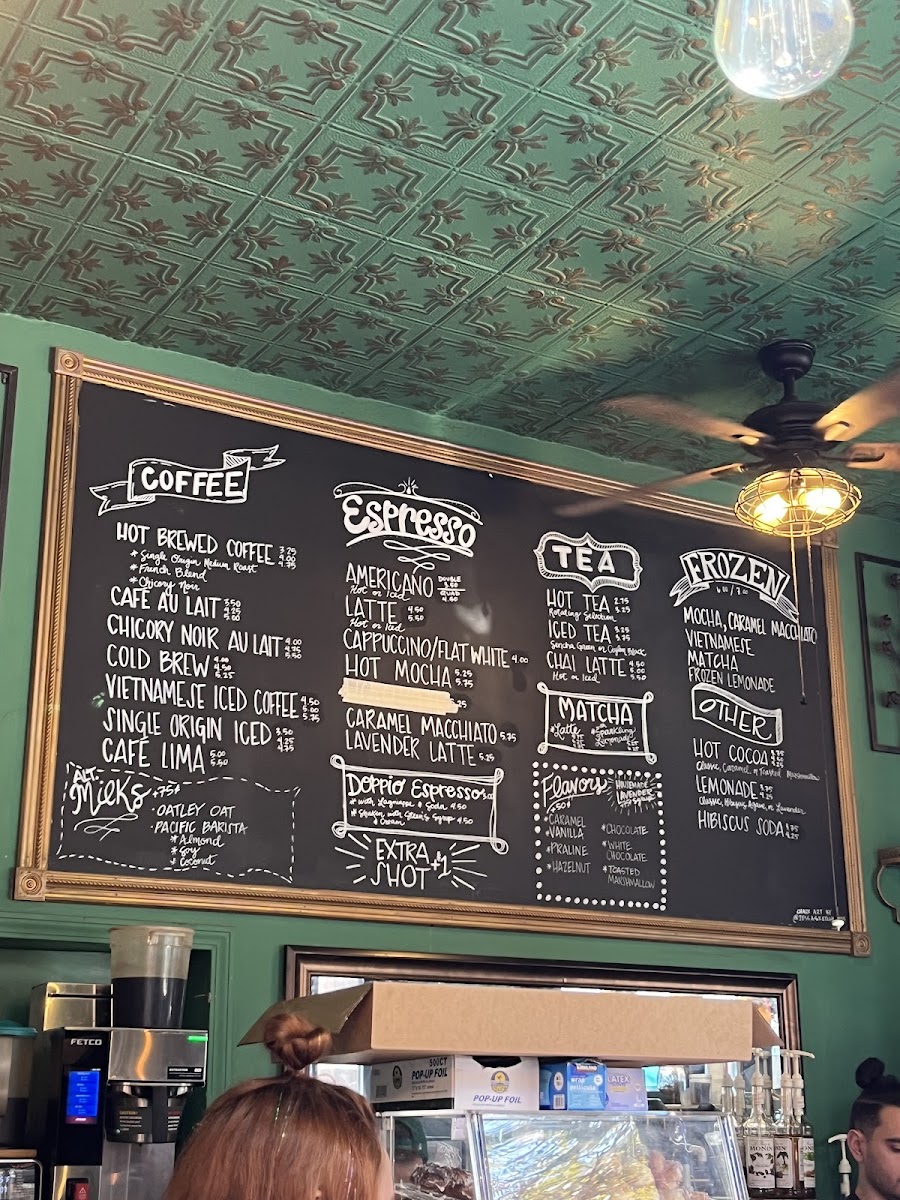 COFFEE
HOT BREWED COFFEE 3.25 4.00 4.75
* Single Origin Medium Roast
* French Blend
* Chicory Noir
CAFÉ AU LAIT 3.50 4.25 5.00
CHICORY NOIR AU LAIT 4.00 4.75 5.50
COLD BREW 4.00 4.50 5.25
VIETNAMESE ICED COFFEE 4.50 5.00 5.75
SINGLE ORIGIN ICED 3.50 4.25 4.75
CAFÉ LIMA 5.00 5.50
ALT. Milks +.75¢
· OATLEY OAT
· PACIFIC BARISTA
* Almond
* Soy
* Coconut
Espresso
AMERICANO DOUBLE 3.50 QUAD 4.50
Hot or Iced
LATTE 4.50 5.50
Hot or Iced
CAPPUCCINO/FLAT WHITE 4.00
HOT MOCHA 5.25 5.75
.25
CARAMEL MACCHIATO 5.75
LAVENDER LATTE 5.25
Doppio Espresso
* with Lagniappe & Soda 4.50
* Shaken with Syrup 4.50
& Cream
EXTRA SHOT +1
TEA
HOT TEA 2.75 3.25
Rotating Selection
ICED TEA 3.25 3.75
Sencha Green or Ceylon Black
CHAI LATTE 4.50 5.00 5.50
Hot or Iced
MATCHA
*Latte *Sparkling Lemonade
Flavors +50¢
HOMEMADE LAVENDER SYRUP
* CARAMEL
* VANILLA
* PRALINE
* HAZELNUT
* CHOCOLATE
* WHITE CHOCOLATE
* TOASTED MARSHMALLOW
FROZEN
6.00 / 7.00
MOCHA, CARAMEL MACCHIATO
VIETNAMESE
MATCHA
FROZEN LEMONADE
OTHER
HOT COCOA
Classic, Caramel, or Toasted Marshmallow
LEMONADE
Classic, Hibiscus or Lavender
HIBISCUS SODA 3.75 4.25
CHALK ART BY
FETCO
CAUTION
500CT
POP-UP FOIL
POP-UP FOIL
KIRKLAND
LATEX
MONIN